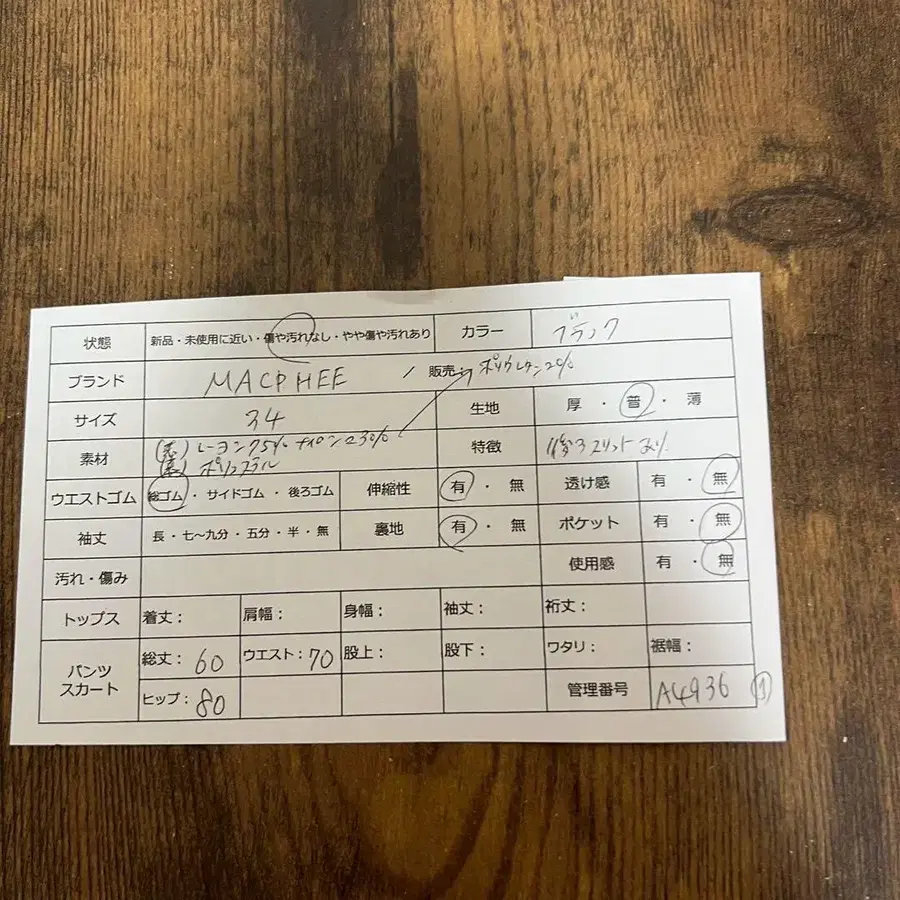 状態 新品・未使用に近い・傷や汚れなし・やや傷や汚れあり カラー ブラック
ブランド MACPHEE / 販売: ポリウレタン2%
サイズ 34 生地 厚・普・薄
素材 (表) レーヨン75% ナイロン23% 特徴 後ろスリットあり
(裏) ポリエステル
ウエストゴム 総ゴム・サイドゴム・後ろゴム 伸縮性 有・無 透け感 有・無
袖丈 長・七〜九分・五分・半・無 裏地 有・無 ポケット 有・無
汚れ・傷み 使用感 有・無
トップス 着丈: 肩幅: 身幅: 袖丈: 裄丈:
パンツ スカート 総丈:60 ウエスト:70 股上: 股下: ワタリ: 裾幅:
ヒップ:80 管理番号 A4936 ①